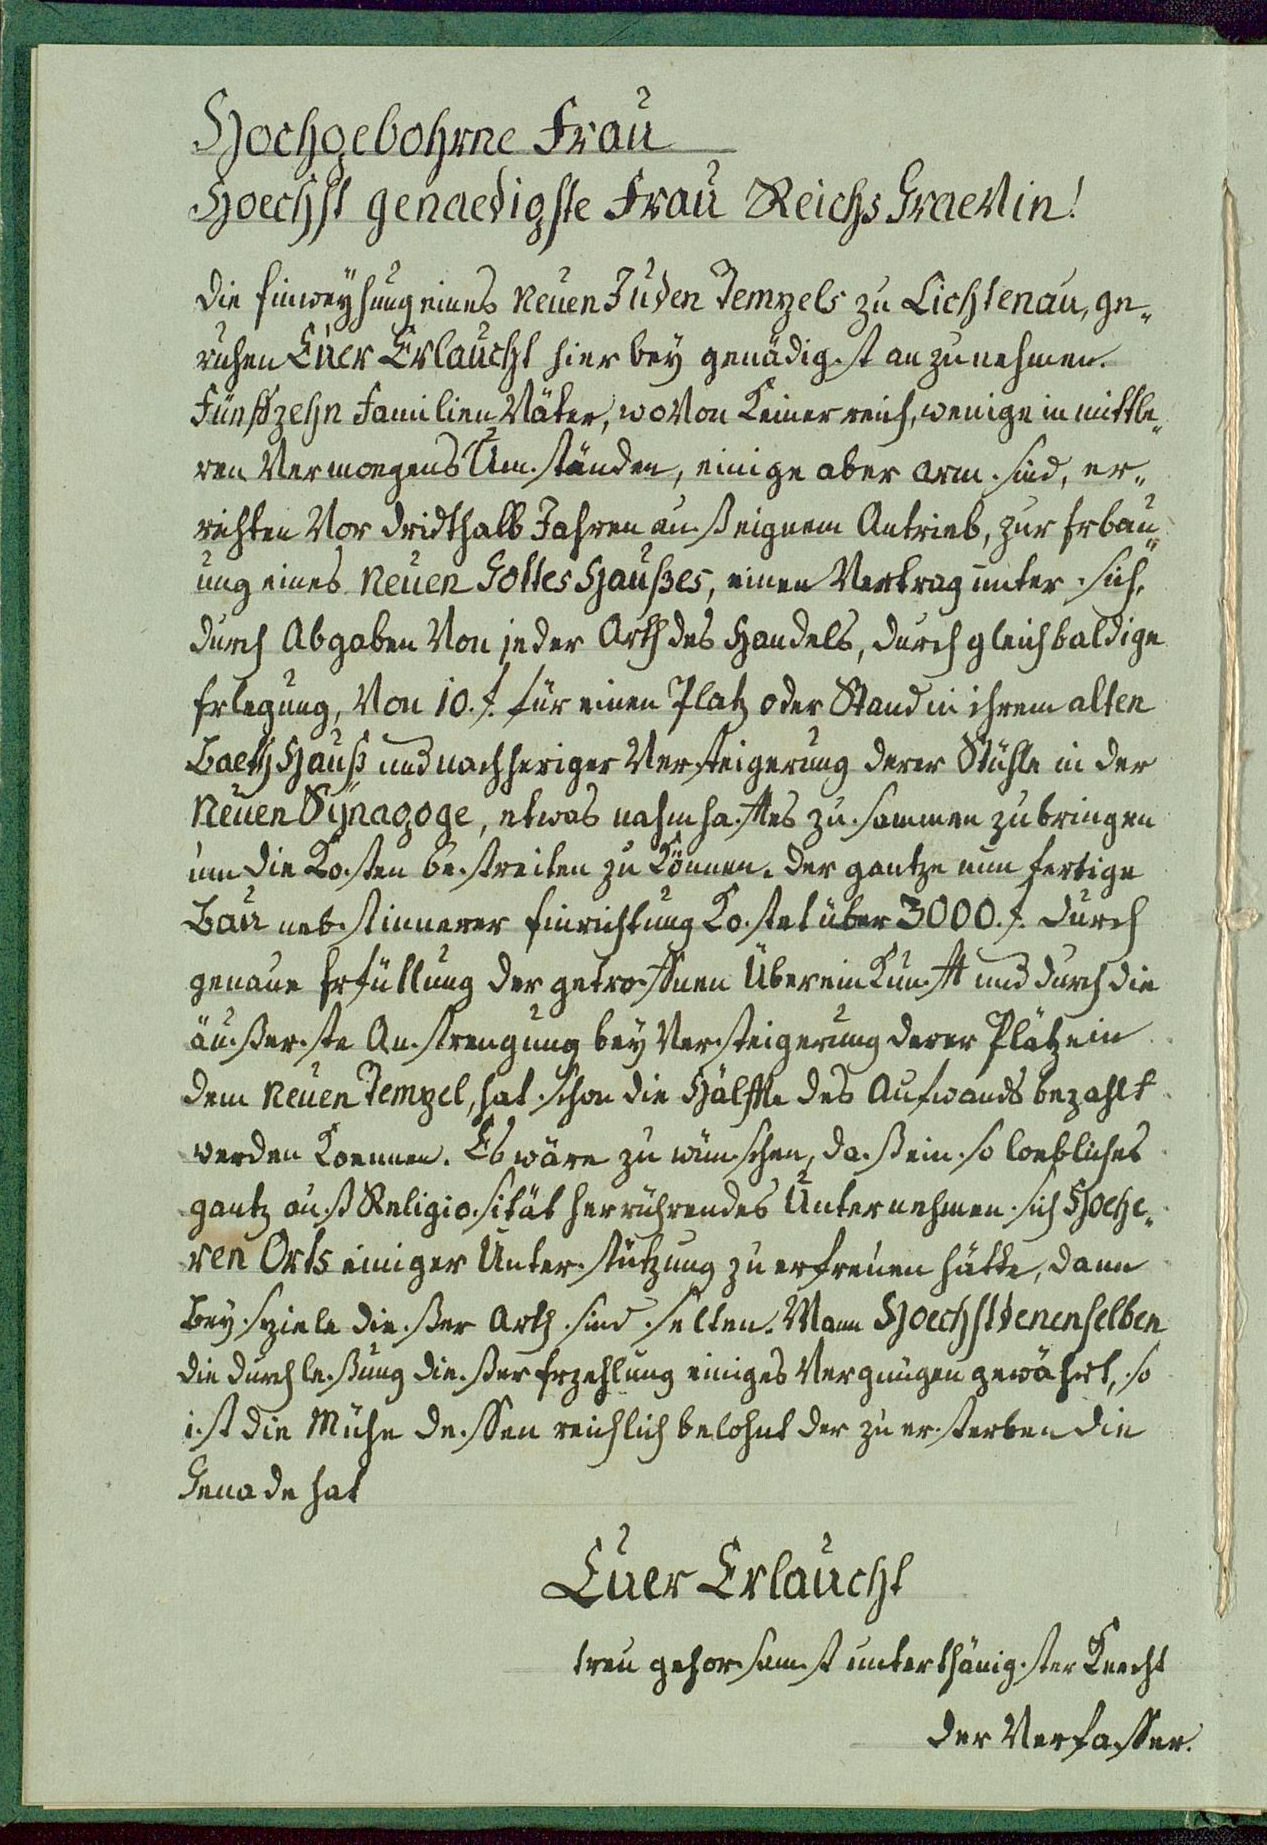 Hochgebohrne Frau
Hoechst genaedigste Frau Reichs Graevin!
die Einweyhung eines Neuen Juden Tempels zu Lichtenau, ge„
ruhen Euer Erlaucht hier bey genädigst anzunehmen.
Fünffzehn Familien Väter, wovon Keiner reich, wenige in mittle„
ren Vermoegens Umständen, einige aber arm sind, er„
richten Vor dridthalb Jahren auß eignem Antrieb, zur Erbau„
ung eines Neuen Gottes Haußes, einen Vertrag unter sich,
durch Abgaben Von jeder Arth des Handels, durch gleichbaldige
Erlegung, Von 10.f. für einen Platz oder Stand in ihrem alten
Baeth Hauß und nachheriger Versteigerung derer Stühle in der
Neuen Synagoge, etwas nahmhafftes zusammen zu bringen
um die Kosten bestreiten zu Können. der gantze nun fertige
Bau nebst innerer Einrichtung Kostet über 3000.f. durch
genaue Erfüllung der getroffnen ÜbereinKunfft und durch die
äußerste Anstrengung bey Versteigerung derer Plätze in
dem Neuen Tempel, hat schon die Hälffte des Aufwands bezahlt
werden Koennen. Es wäre zu wünschen, daß ein so loebliches
gantz auß Religiosität herrührendes Unternehmen sich Hoehe„
ren Orts einiger Unterstützung zu erfreuen hätte, dann
Beyspiele dießer Arth sind selten. Wann Hoechstdenenselben
die durchleßung dießer Erzehlung einiges Vergnügen gewährt, so
ist die Mühe dessen reichlich belohnt der zu ersterben die
Genade hat
Euer Erlaucht
treu gehorsamst unterthänigster Knecht
der Verfasser.